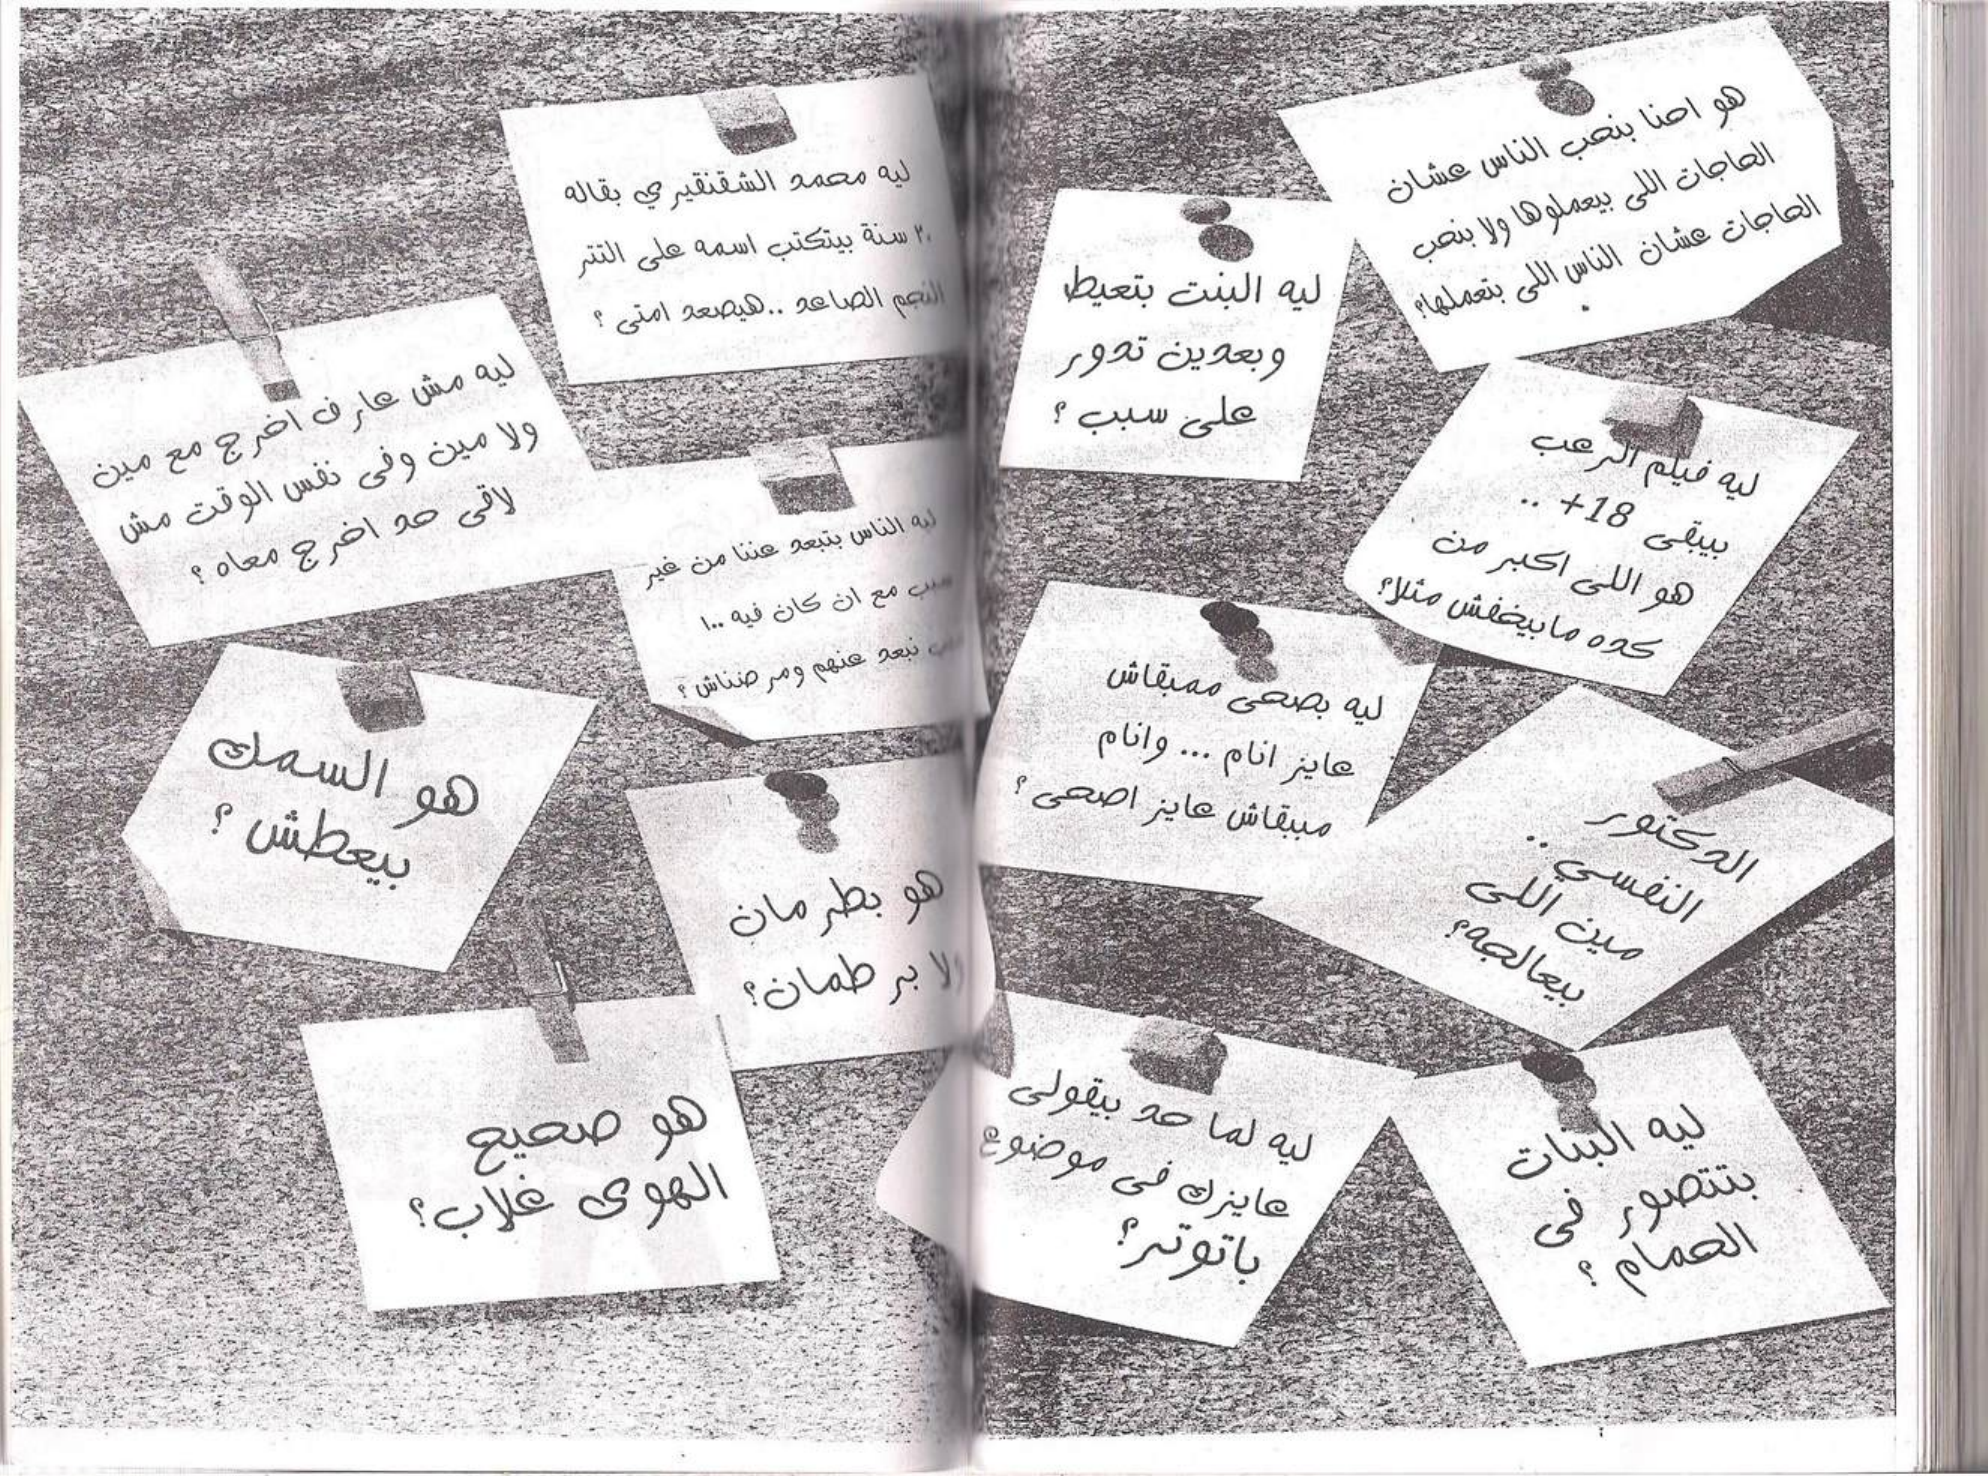 هو احنا بنحب الناس عشان
الحاجات اللى بيعملوها ولا بنحب
الحاجات عشان الناس اللى بتعملها؟
ليه البنت بتعيط
وبعدين تدور
على سبب ؟
ليه فيلم الرعب
بيبقى 18+ ..
هو اللى اكبر من
كده مابيخفش مثلا؟
ليه بصحى ممبقاش
عايز انام ... وانام
مببقاش عايز اصحى ؟
الدكتور
النفسي ..
مين اللى
بيعالجه؟
ليه لما حد بيقولى
عايزك فى موضوع
باتوتر؟
ليه البنات
بتتصور فى
الحمام ؟
ليه محمد الشقنقيري بقاله
٢٠ سنة بيتكتب اسمه على التتر
النجم الصاعد ..هيصعد امتى ؟
ليه مش عارف اخرج مع مين
ولا مين وفى نفس الوقت مش
لاقى حد اخرج معاه ؟
ليه الناس بتبعد عننا من غير
سبب مع ان كان فيه ١٠٠
نبعد عنهم ومرضناش ؟
هو السمك
بيعطش ؟
هو بطرمان
ولا برطمان؟
هو صحيح
الهوى غلاب؟